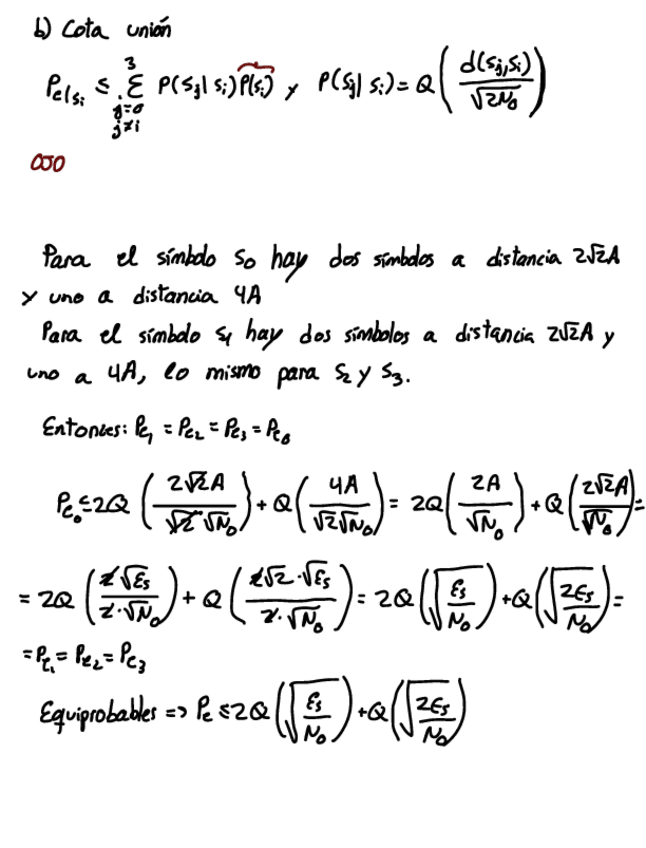 b) Cota unión
P_{e|s_i} ≤ Σ_{j=0, j≠i}^{3} P(s_j | s_i) P(s_i) y P(s_j | s_i) = Q( d(s_j, s_i) / √(2N_0) )
OJO
Para el símbolo s_0 hay dos símbolos a distancia 2√2A
y uno a distancia 4A
Para el símbolo s_1 hay dos símbolos a distancia 2√2A y
uno a 4A, lo mismo para s_2 y s_3.
Entonces: P_{e_1} = P_{e_2} = P_{e_3} = P_{e_0}
P_{e_0} ≤ 2Q( 2√2A / √2 √N_0 ) + Q( 4A / √2 √N_0 ) = 2Q( 2A / √N_0 ) + Q( 2√2A / √N_0 ) =
= 2Q( 2√E_s / 2·√N_0 ) + Q( 2√2·√E_s / 2·√N_0 ) = 2Q( √(E_s / N_0) ) + Q( √(2E_s / N_0) ) =
= P_{e_1} = P_{e_2} = P_{e_3}
Equiprobables => P_e ≤ 2Q( √(E_s / N_0) ) + Q( √(2E_s / N_0) )